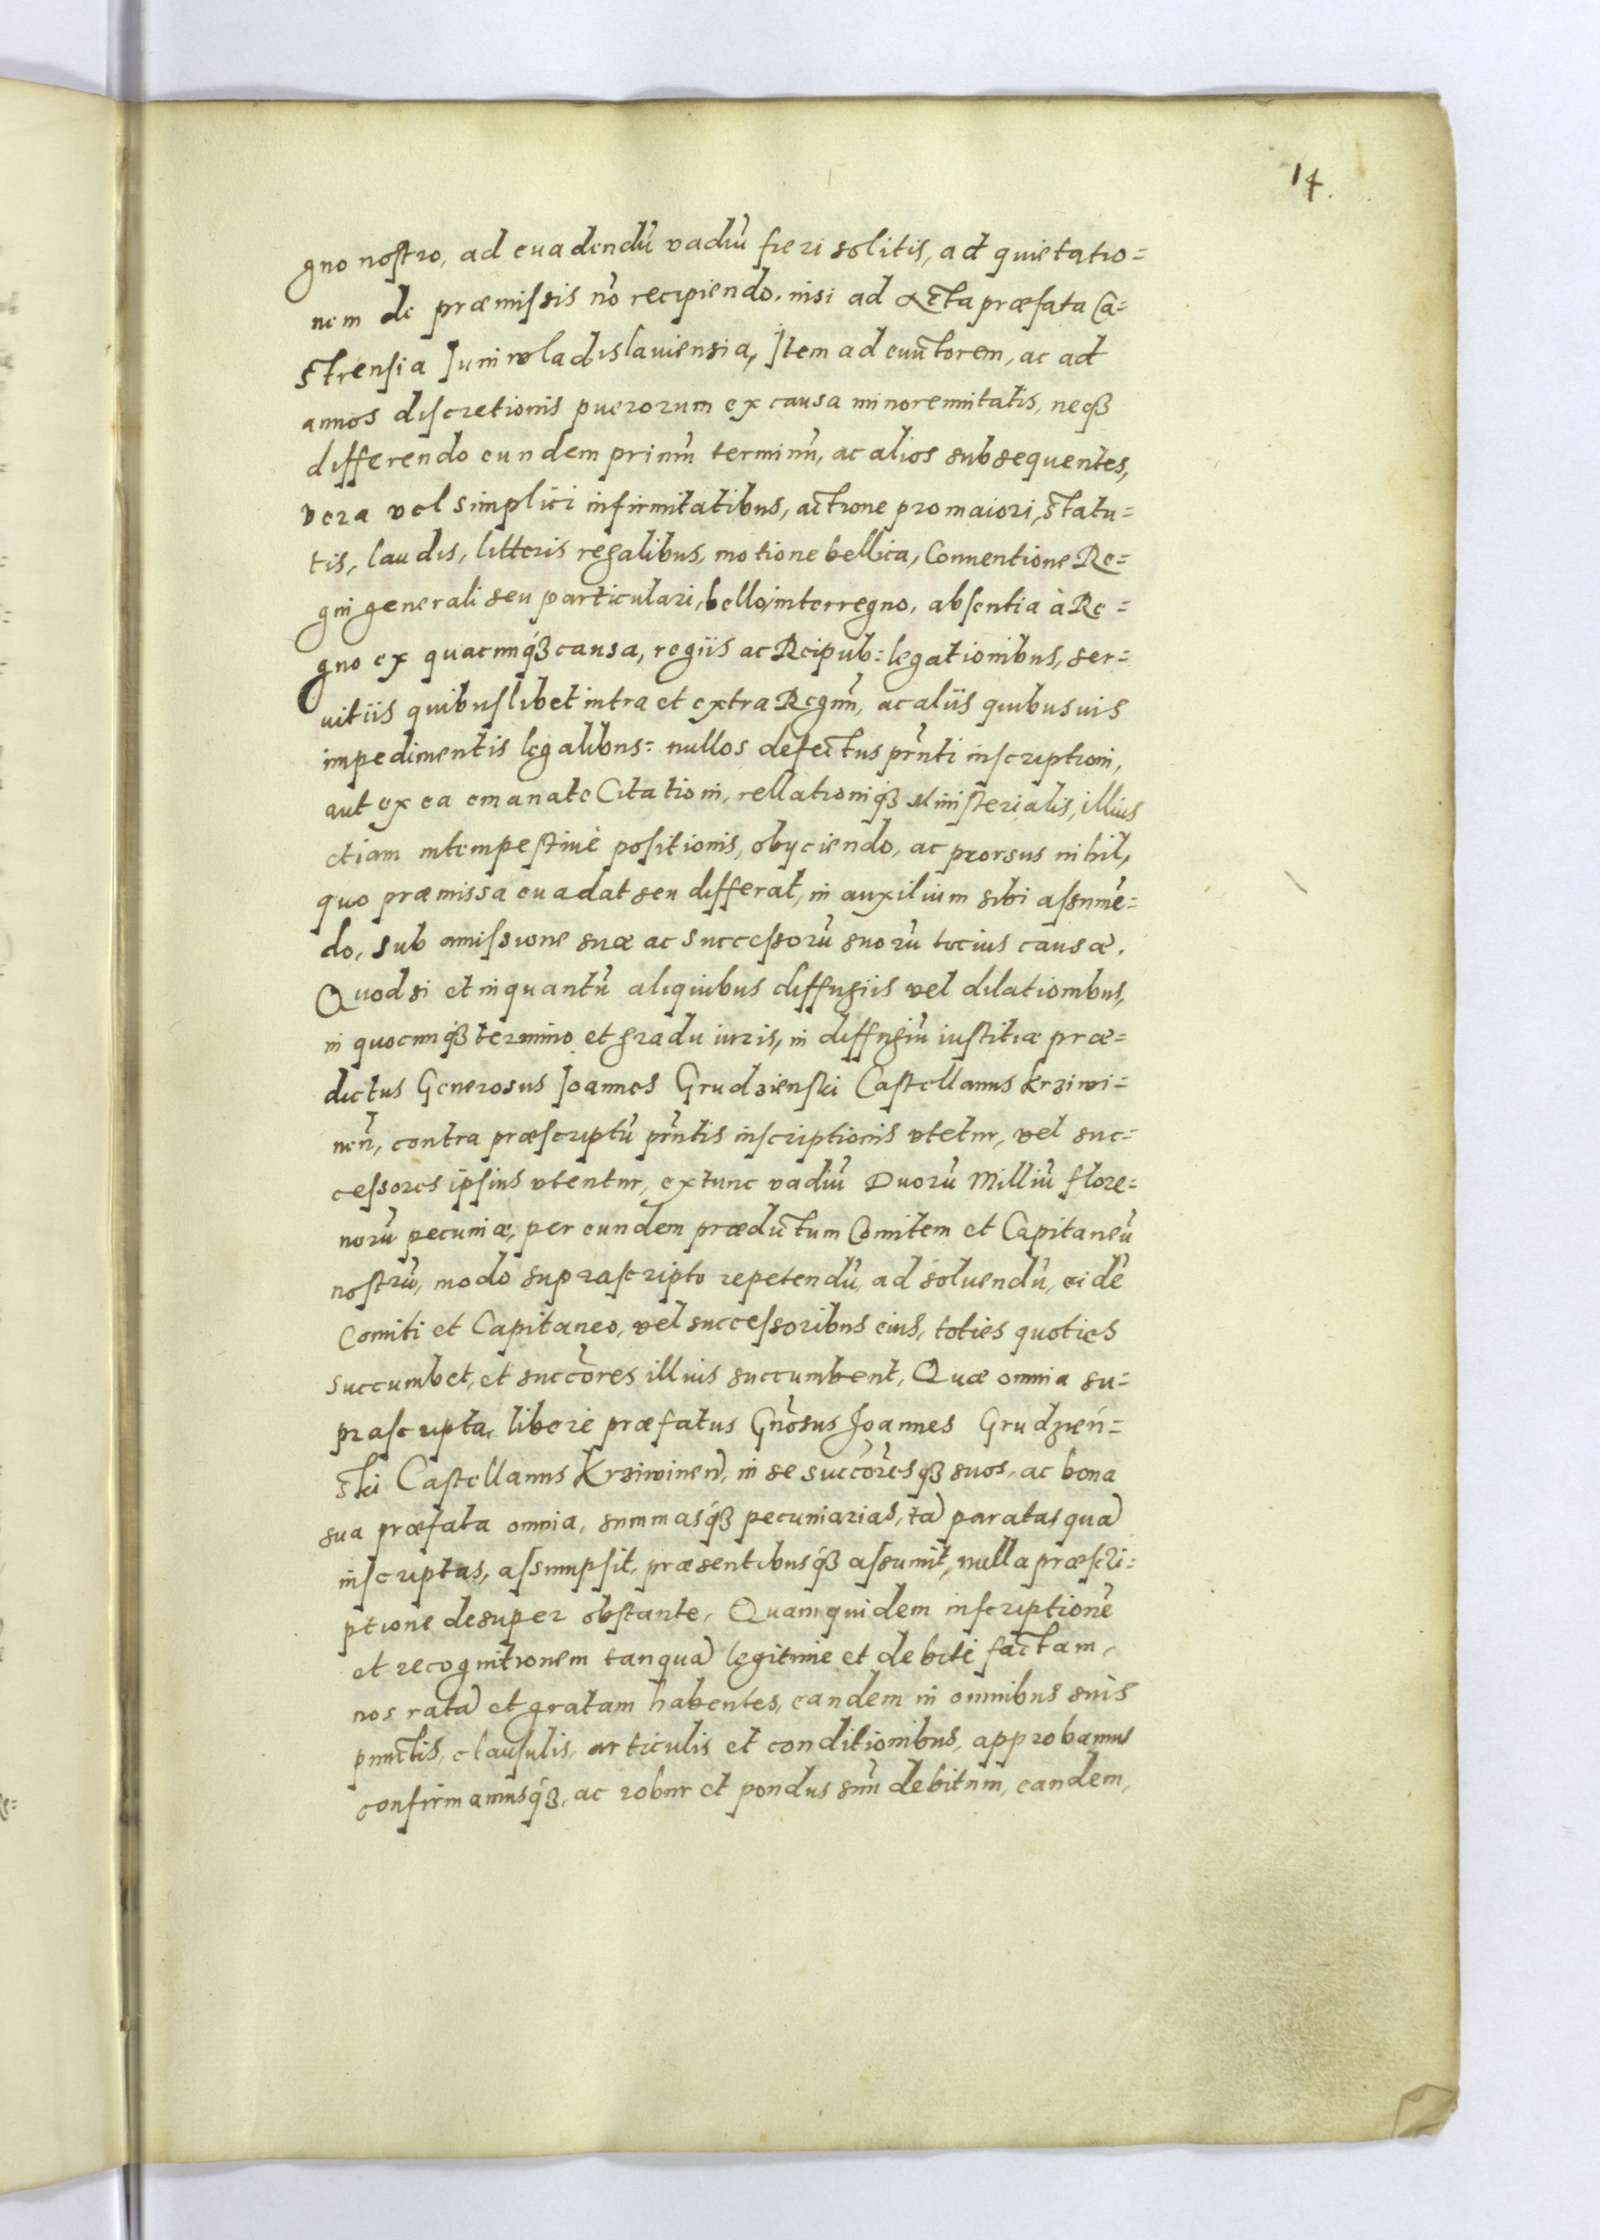 14.
gno nostro, ad euadendũ vadiũ fieri solitis, ad quietatio=
nem de præmissis nõ recipiendo, nisi ad Acta præfata Ca=
strensia Juniwladislauiensia, Item ad euictorem, ac ad
annos discretionis puerorum ex causa minorennitatis, neqꝫ
differendo eundem primũ terminũ, ac alios subsequentes,
vera vel simplici infirmitatibus, actione pro maiori, statu=
tis, laudis, litteris regalibus, motione bellica, Conuentione Re=
gni generali seu particulari, bello, interregno, absentia à Re=
gno ex quacunqꝫ causa, regiis ac Reipub= legationibus, ser=
uitiis quibuslibet intra et extra Regnũ, ac aliis quibusuis
impedimentis legalibus= nullos defectus prñti inscriptioni,
aut ex ea emanate Citationi, rellationiqꝫ Ministerialis, illius
etiam intempestiuè positionis, obyciendo, ac prorsus nihil,
quo præmissa euadat seu differat, in auxilium sibi assumẽ=
do, sub amissione suæ ac successorũ suorũ tocius causæ.
Quod si et inquantũ aliquibus diffugiis vel dilationibus,
in quocunqꝫ termino et gradu iuris, in diffugiũ iustitiæ præ=
dictus Generosus Joannes Grudzienski Castellanus Krziwi=
neñ, contra præscriptũ prñtis inscriptionis vtetur, vel suc=
cessores ipsius vtentur, extunc vadiũ Duorũ Milliũ flore=
norũ pecuniæ, per eundem prædictum Comitem et Capitaneũ
nostrũ, modo suprascripto repetendũ, ad soluendũ, eidẽ
Comiti et Capitaneo, vel successoribus eius, toties quoties
succumbet, et succõres illius succumbent, Quæ omnia su=
prascripta, liberè præfatus Gñosus Joannes Grudzień=
ski Castellanus Krziwineñ, in se succõresqꝫ suos, ac bona
sua præfata omnia, summasqꝫ pecuniarias, tã paratas quã
inscriptas, assumpsit, præsentibusqꝫ assumit, nulla præscri=
ptione desuper obstante, Quamquidem inscriptionẽ
et recognitionem tanquã legitimè et debitè factam,
nos ratã et gratam habentes, eandem in omnibus suis
punctis, clausulis, articulis et conditionibus, approbamus
confirmamusqꝫ, ac robur et pondus suũ debitum, eandem,